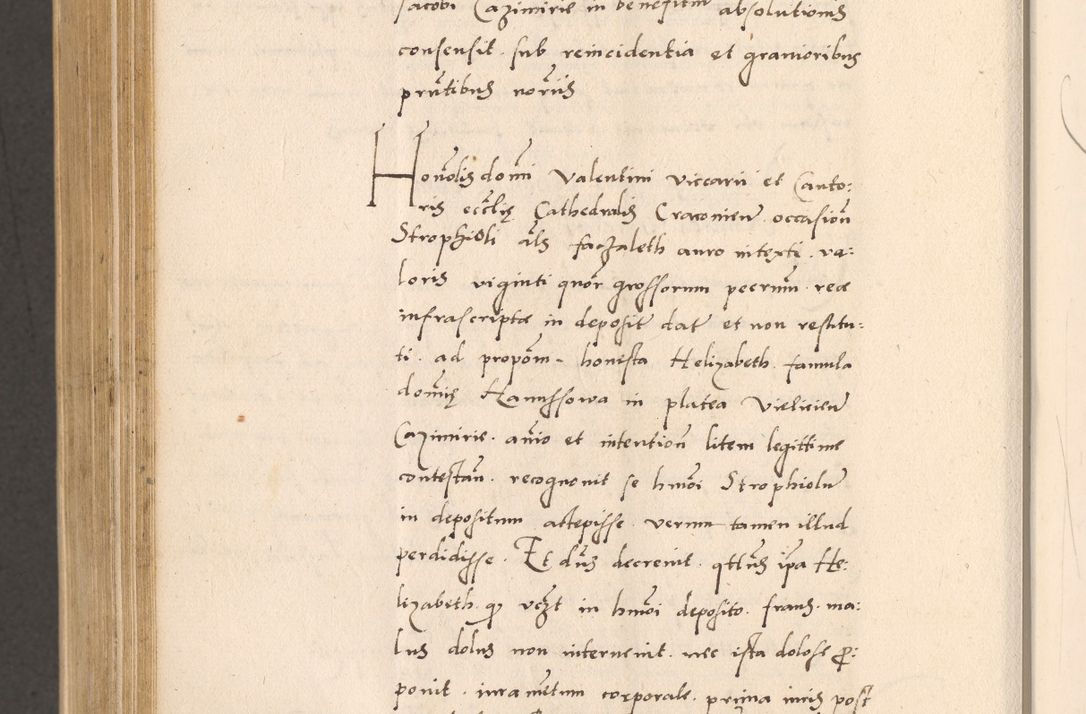 Jacobi Cazimirie in beneficium absolutionis
consensit. sub reincidentia et gravioribus
prñtibus norīis
Honōlis domī Valentini viccarii et Canto:
ris ecclīę Cathedralis Cracovien̄. occasiōn
Strophioli ałs faczaleth auro intexti. va:
loris viginti quōr grossorum pecrum̄. reae
infrascriptae in deposit̄ dat̄ et non restitu:
ti. ad propōm̄ - honesta Helizabeth. famula
domīę Hanussowa in platea Vielicien̄
Cazimirie. anīo et intention̄ litem legittime
contestan̄. recognovit se hmōi Strophiolū
in depositum accepisse. verum tamen illud
perdidisse. Et dn̄s decrevit. qttn̄s ip̄a He:
lizabeth. qꝫ in hmōi deposito. fraus. ma:
lus dolus non intervenit. nec ista dolose p̄:
ponit. iuramētum corporale. prima iuris post